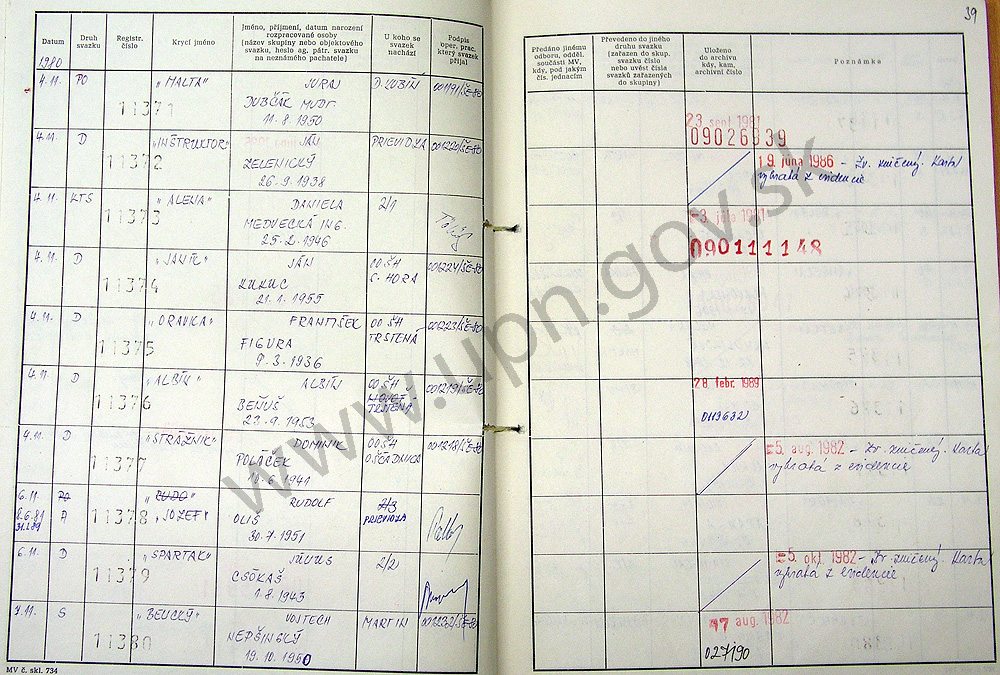 39
Datum
Druh svazku
Registr. číslo
Krycí jméno
Jméno, příjmení, datum narození rozpracované osoby (název skupiny nebo objektového svazku, heslo ag. pátr. svazku na neznámého pachatele)
U koho se svazek nachází
Podpis oper. prac. který svazek přijal
Předáno jinému odboru, odděl. součásti MV, kdy, pod jakým čís. jednacím
Převedeno do jiného druhu svazku (zařazen do skup. svazku číslo nebo uvést čísla svazků zařazených do skupiny)
Uloženo do archivu kdy, kam, archivní číslo
Poznámka
1980
4.11. PO 11371 "MALTA" JURAJ D. KUBÍN
DUBČÁK MUDr.
11.8.1950
23. sept. 1981
09026939
4.11. D 11372 "INŠTRUKTOR" JÁN PRIEVIDZA 001220/ŠE-80
ZELENICKÝ
26.9.1938
19. júna 1986 - Zv. zničený. Karta
vybratá z evidencie
4.11. KTS 11373 "ALENA" DANIELA 2/1
MEDVECKÁ ING.
25.2.1946
-3. júla 1981
090111148
4.11. D 11374 "JANÍK" JÁN OO ŠH 001224/ŠE-80
KUKUC Č. HORA
21.1.1955
4.11. D 11375 "ORAVKA" FRANTIŠEK OO ŠH 001223/ŠE-80
FIGURA TRSTENÁ
9.3.1936
4.11. D 11376 "ALBÍN" ALBÍN OO ŠH 001219/ŠE-80
BEŇUŠ TRSTENÁ
23.9.1953
28. febr. 1989
4.11. D 11377 "STRÁŽNIK" DOMINIK OO ŠH 001218/ŠE-80
POLÁČEK OŠČADNICA
10.6.1941
-5. aug. 1982 - Zv. zničený. Karta
vybratá z evidencie
6.11. 11378 "RUDO" RUDOLF 2/3
"JOZEF" OLIŠ PRIEVIDZA
30.7.1951
6.11. D 11379 "SPARTAK" JÚLIUS 2/2
CSÓKÁŠ
1.8.1943
-5. okt. 1982 - Zv. zničený. Karta
vybratá z evidencie
7.11. S 11380 VOJTECH MARTIN 001232/ŠE-80
NEPŠINSKÝ
19.10.1950
17 aug. 1982
027190
MV č. skl. 734
www.upn.gov.sk